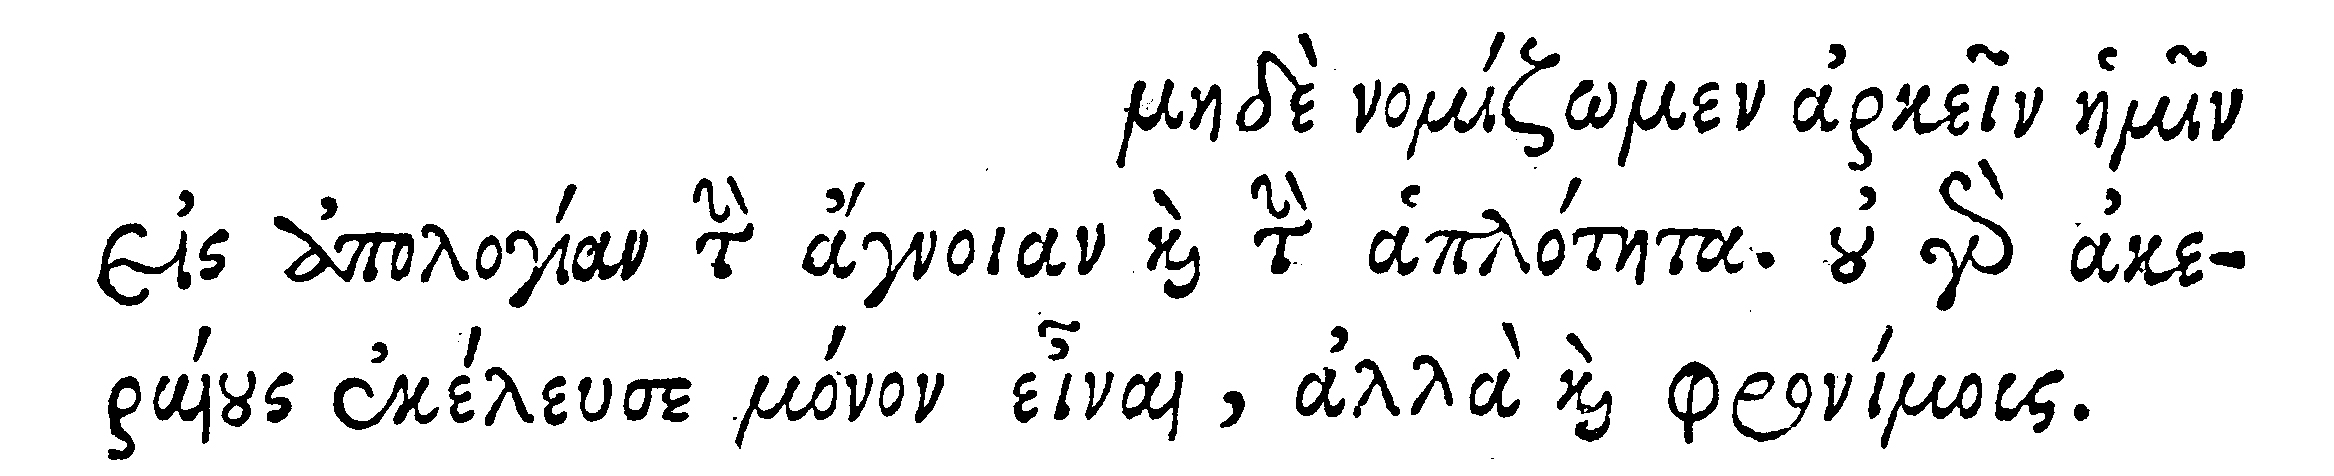 μηδὲ νομίζωμεν ἀρκεῖν ἡμῖν
εἰς ἀπολογίαν τὴν ἄγνοιαν ϗ̀ τὴν ἁπλότητα. ȣ̓ γὰρ ἀκε-
ραίȣς ἐκέλευσε μόνον εἶναι, ἀλλὰ ϗ̀ φρονίμοις.